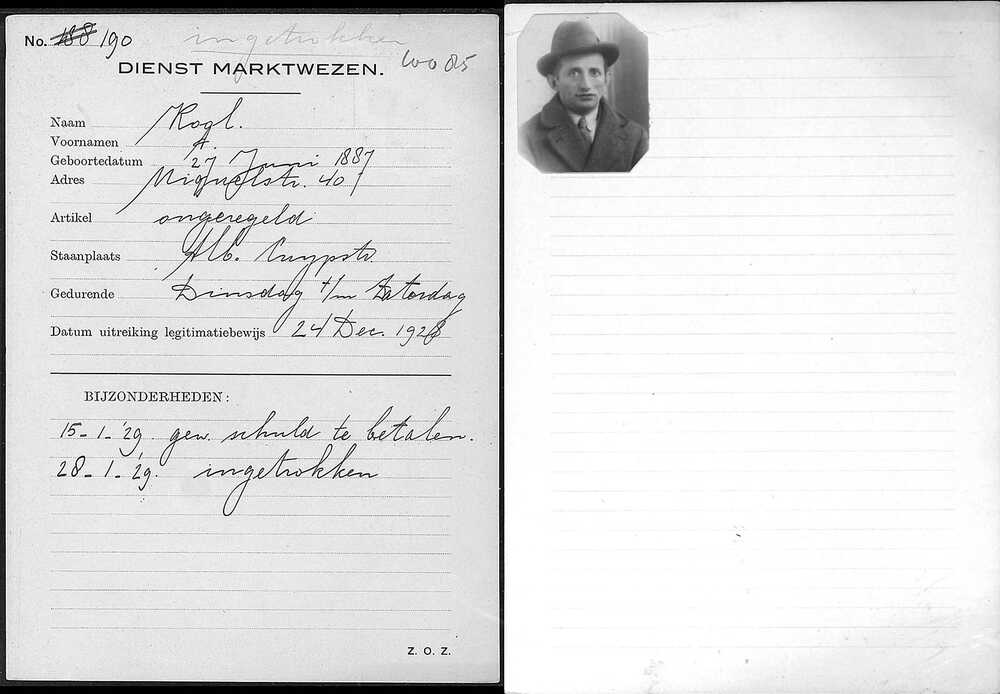 No. 188 190
ingetrokken
DIENST MARKTWEZEN.
Naam Kogl.
Voornamen A.
Geboortedatum 27 Juni 1887
Adres Miquelstr. 40
Artikel ongeregeld
Staanplaats Alb. Cuypstr.
Gedurende Dinsdag t/m Zaterdag
Datum uitreiking legitimatiebewijs 24 Dec. 1928
BIJZONDERHEDEN:
15-1-'29. gew. schuld te betalen.
28-1-'29. ingetrokken
Z. O. Z.